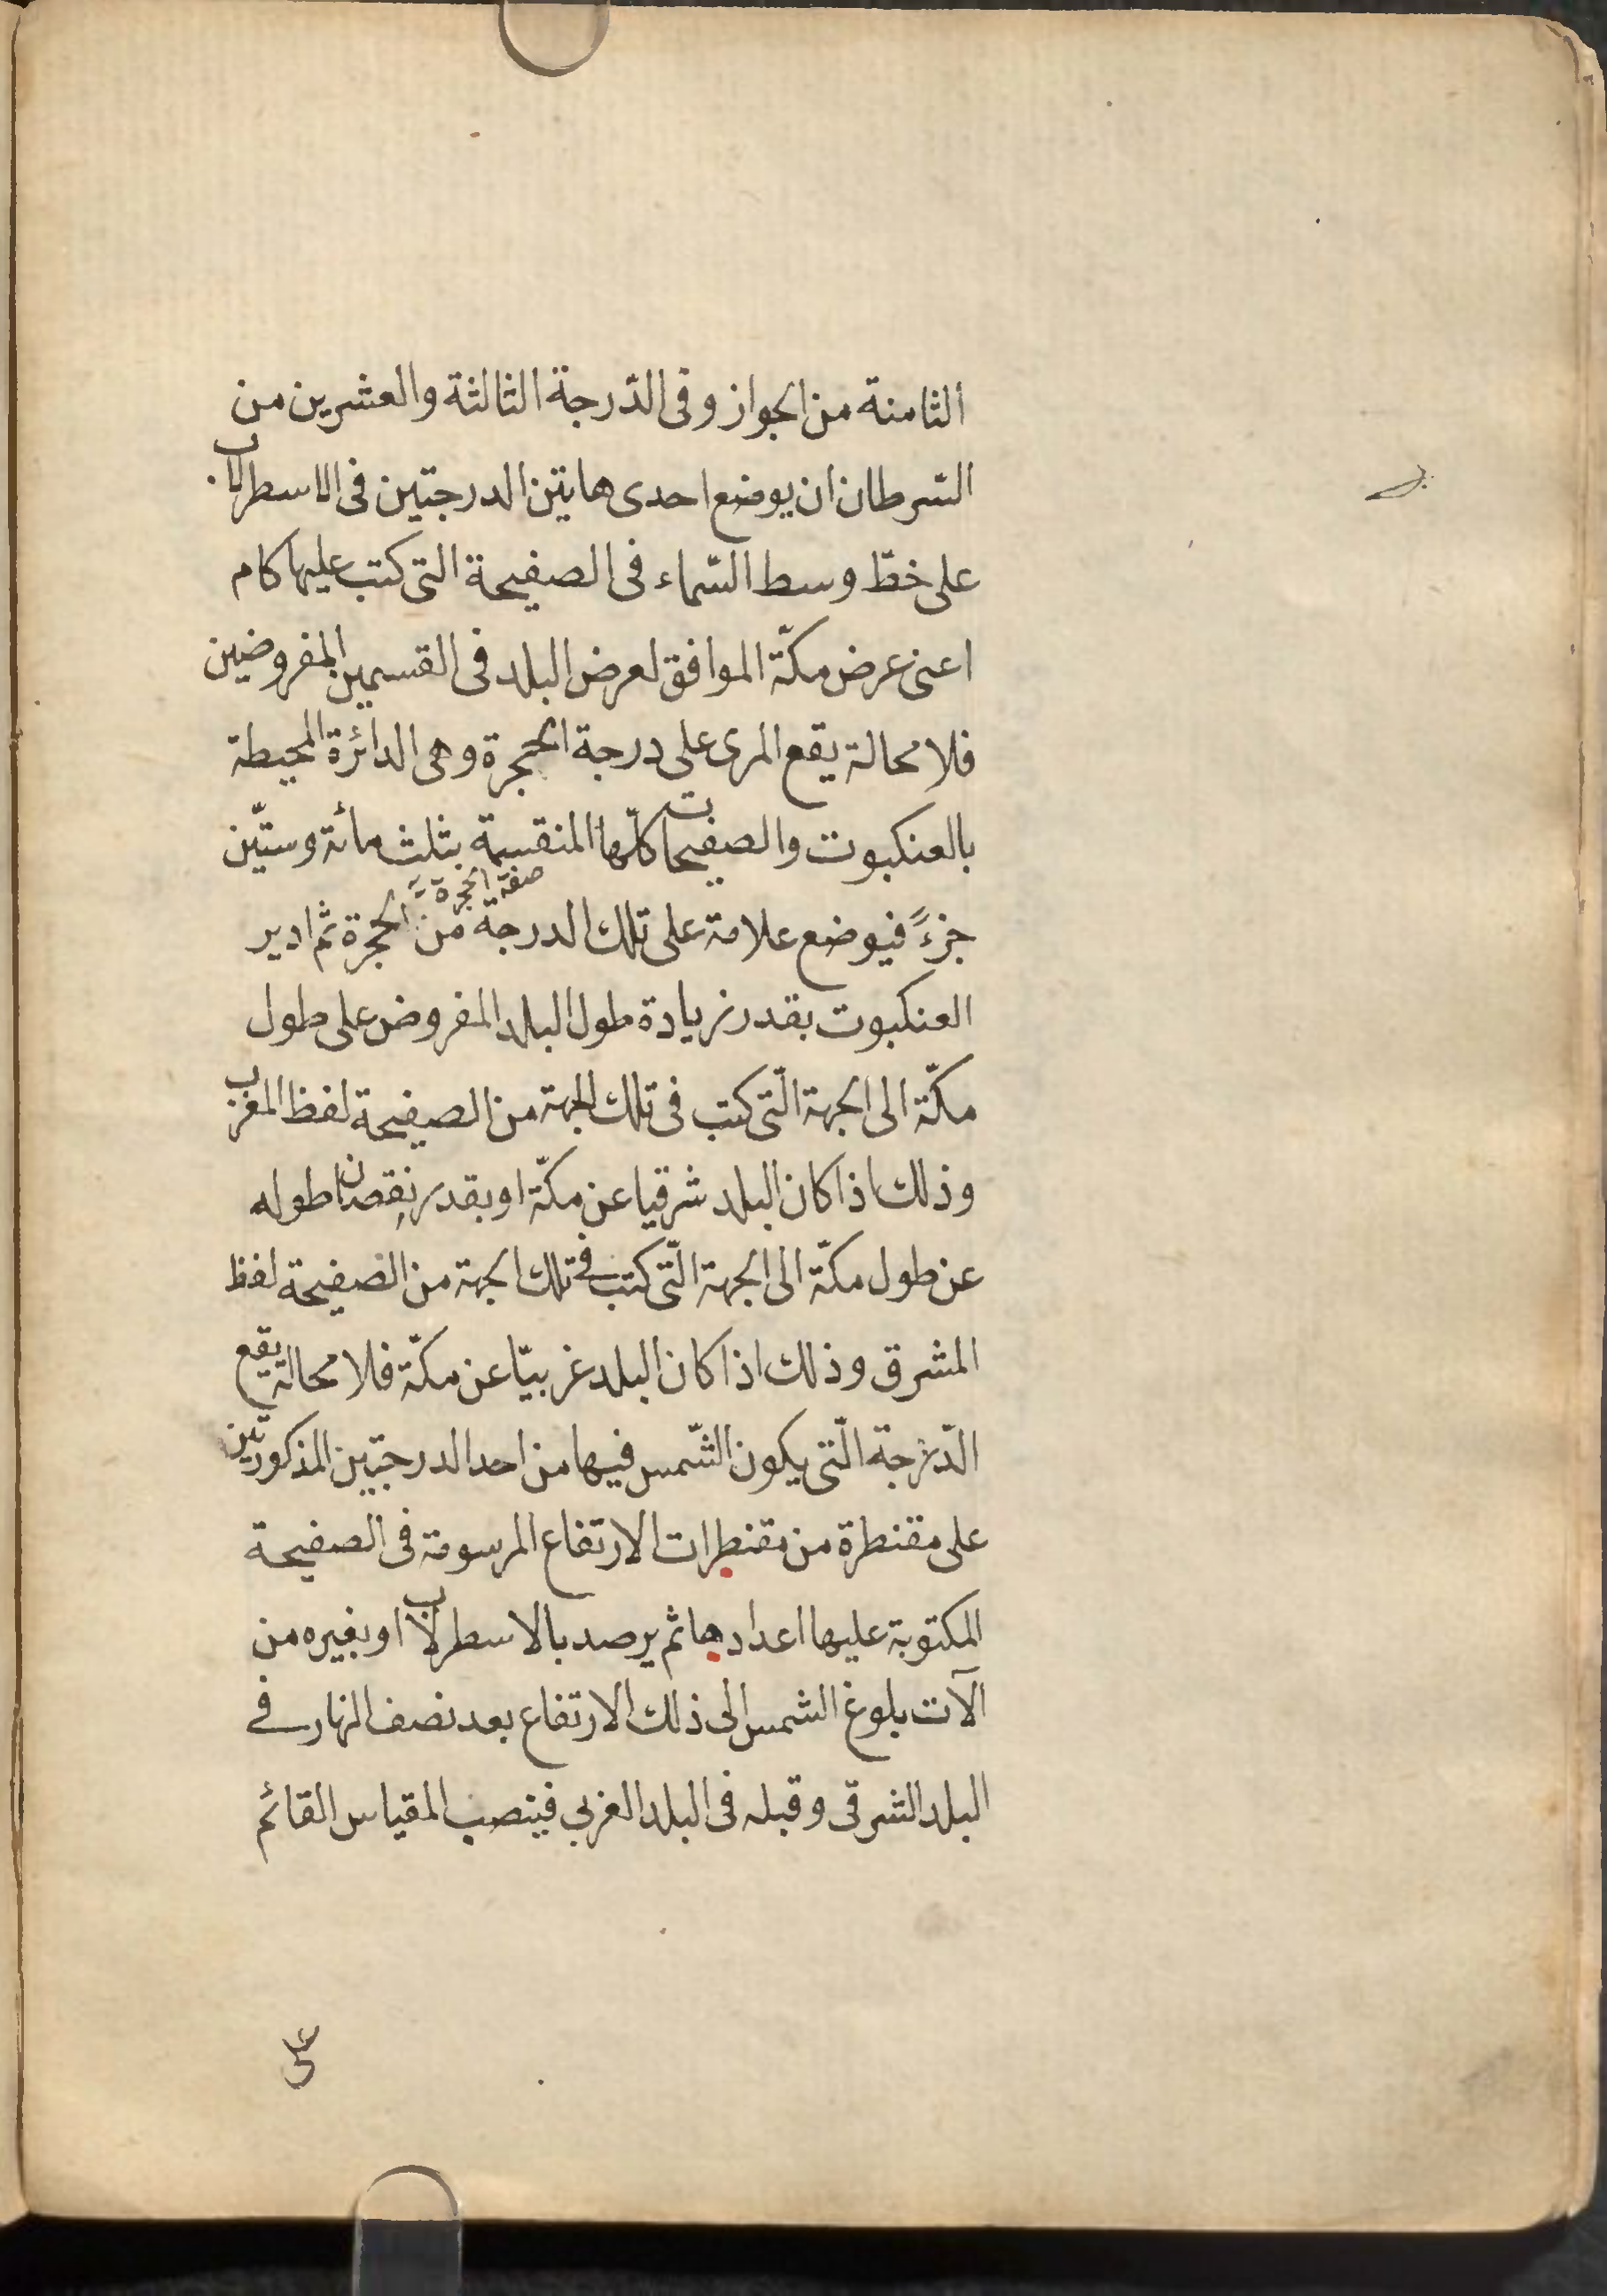 الثامنة من الجواز وفى الدّرجة الثالثة والعشرين من
السّرطان ان يوضع احدى هايتن الدرجتين فى الاسطرلاب
على خطّ وسط السّماء فى الصفيحة التى كتب عليها كام
اعنى عرض مكّة الموافق لعرض البلد فى القسمين المفروضين
فلا محالة يقع المرى على درجة الحجرة وهى الدائرة المحيطة
بالعنكبوت والصفيحات كلّها المنقسمة بثلث مائة وستّين
صفة الحجرة
جزءً فيوضع علامة على تلك الدرجة من الحجرة ثم ادير
العنكبوت بقدر زيادة طول البلد المفروض على طول
مكّة الى الجهة الّتى كتب فى تلك الجهة من الصفيحة لفظ المغرب
وذلك اذا كان البلد شرقيا عن مكّة او بقدر نقصان طوله
عن طول مكّة الى الجهة الّتى كتب فى تلك الجهة من الصفيحة لفظ
المشرق وذلك اذا كان البلد غربيّا عن مكّة فلا محالة يقع
الدّرجة الّتى يكون الشّمس فيها من احد الدرجتين المذكورتين
على مقنطرة من مقنطرات الارتفاع المرسومة فى الصفيحة
المكتوبة عليها اعدادها ثم يرصد بالاسطرلاب او بغيره من
الآت بلوغ الشمس الى ذلك الارتفاع بعد نصف النهار فى
البلد الشرقى وقبله فى البلد الغربي فينصب المقياس القائم
على